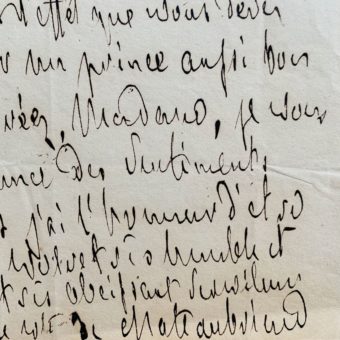 d'effet que vous devez
r un prince aussi bon
réez, Madame, je vous
ance des sentiments
j'ai l'honneur d'être
votre très humble et
t très obéissant serviteur
le vte de Chateaubriand